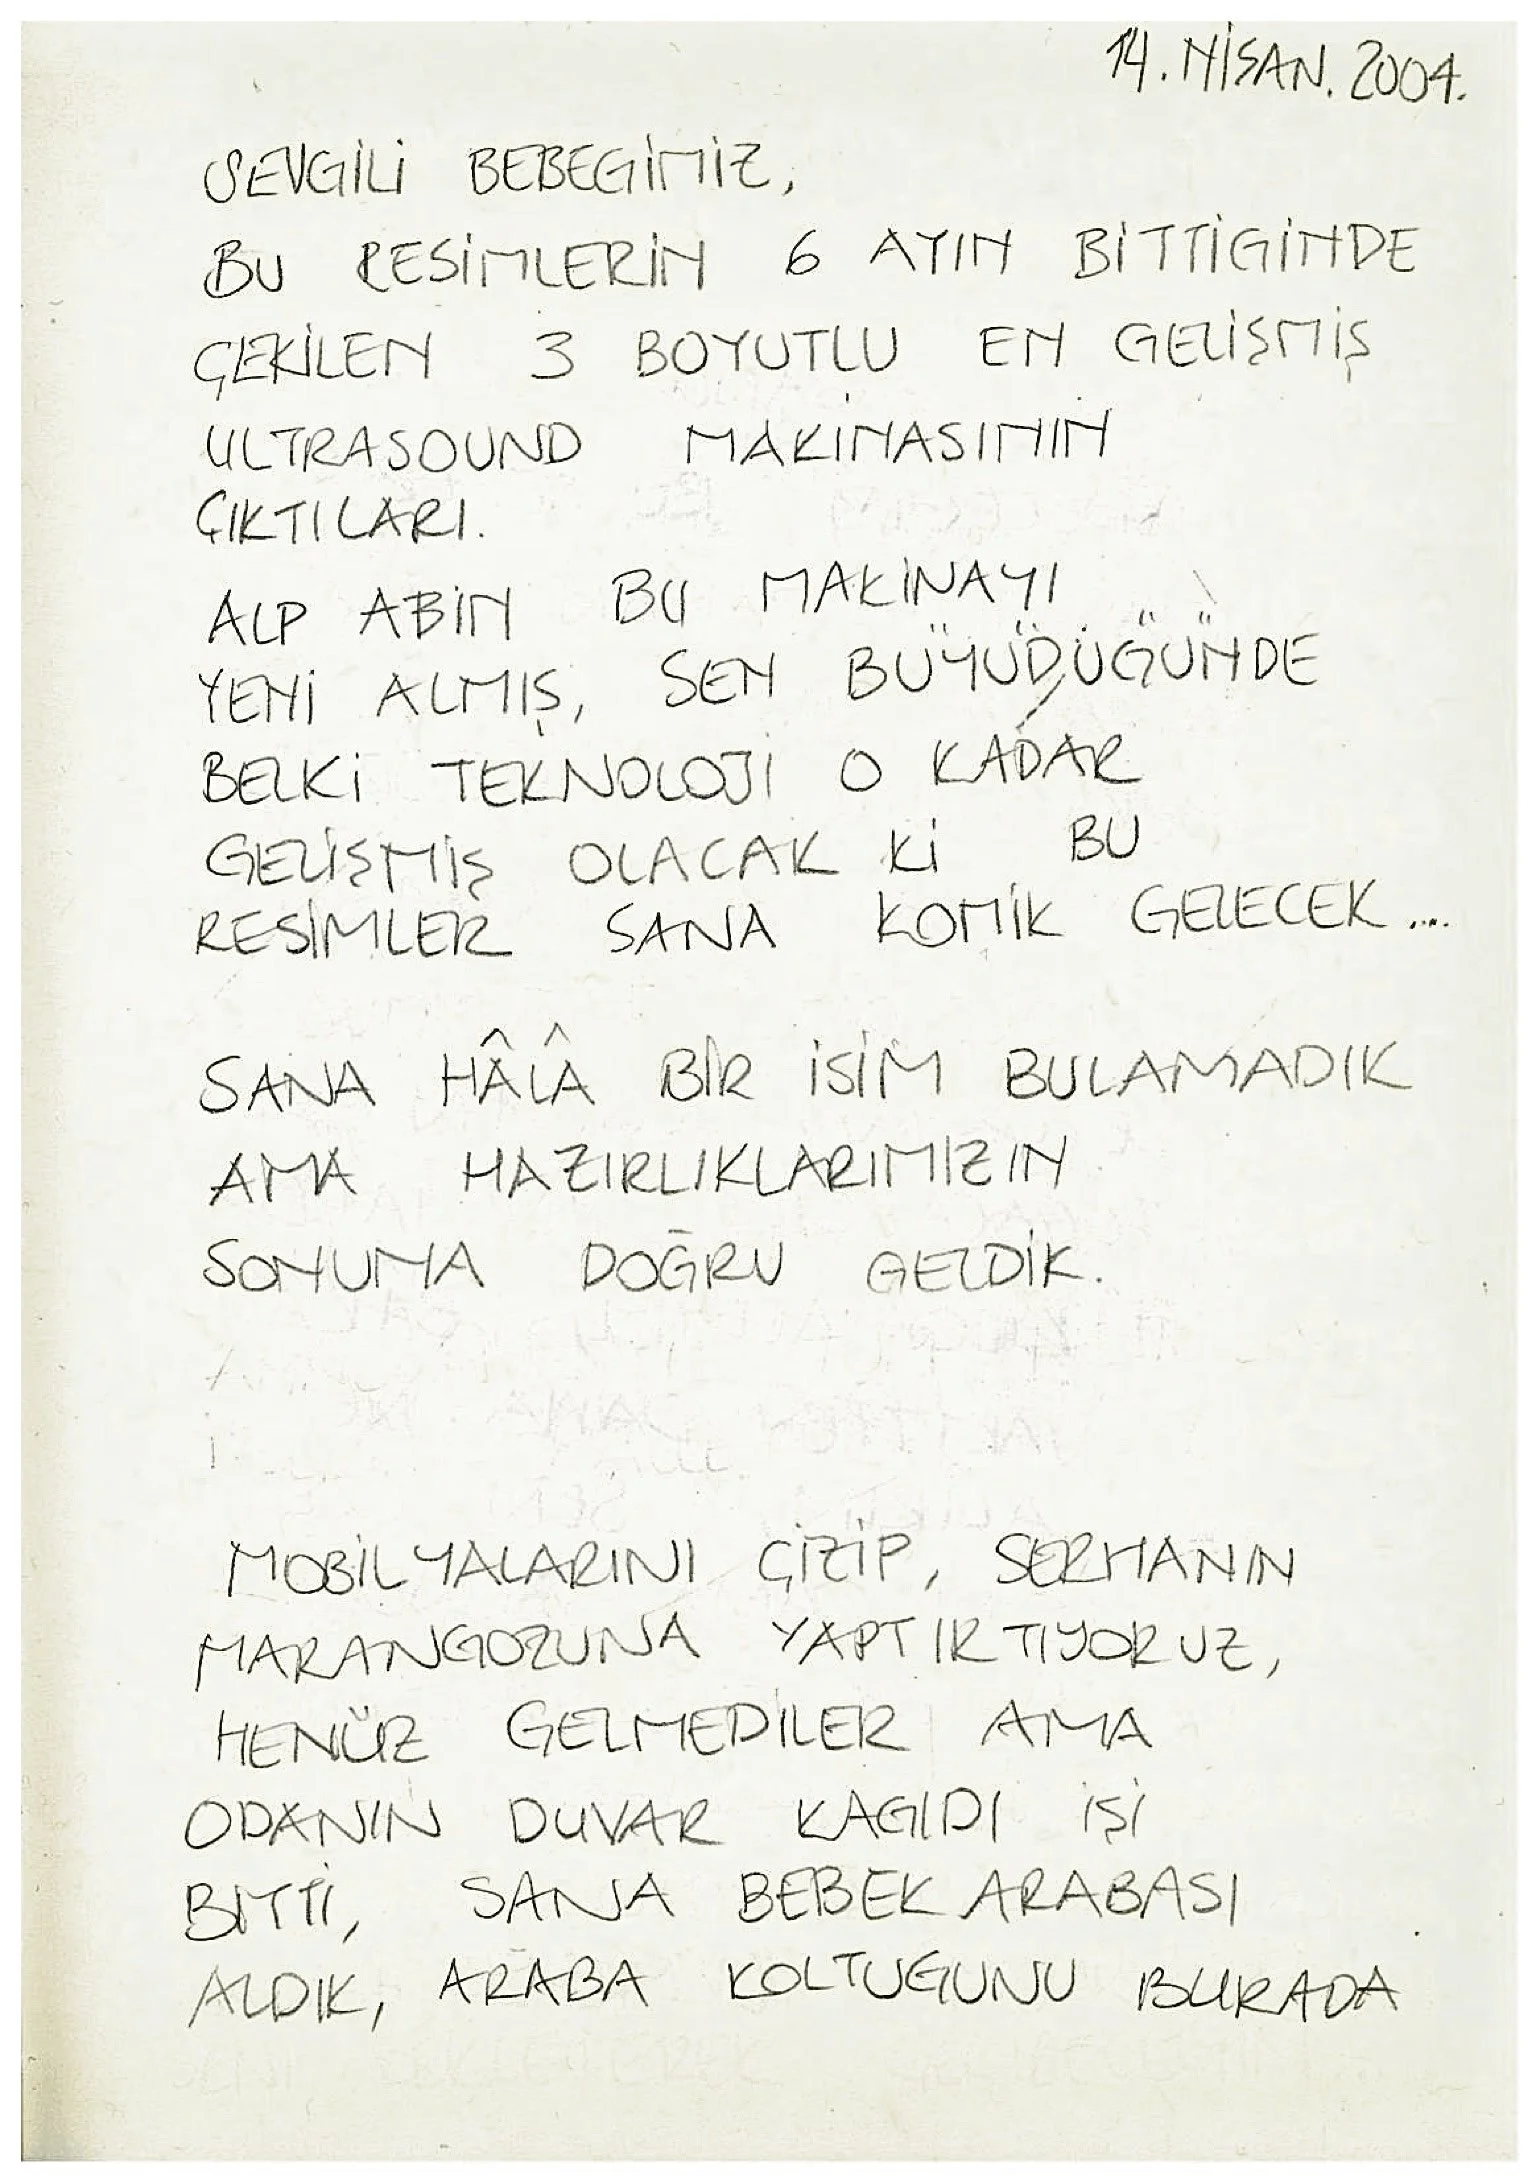 14. NİSAN. 2004.
SEVGİLİ BEBEGİMİZ,
BU RESİMLERİN 6 AYIN BİTTİGİNDE
ÇEKİLEN 3 BOYUTLU EN GELİŞMİŞ
ULTRASOUND MAKİNASININ
ÇIKTILARI.
ALP ABİN BU MAKİNAYI
YENİ ALMIŞ, SEN BÜYÜDÜĞÜNDE
BELKİ TEKNOLOJİ O KADAR
GELİŞMİŞ OLACAK Kİ BU
RESİMLER SANA KOMİK GELECEK...
SANA HÂLÂ BİR İSİM BULAMADIK
AMA HAZIRLIKLARIMIZIN
SONUNA DOĞRU GELDİK.
MOBİLYALARINI ÇİZİP, SERHANIN
MARANGOZUNA YAPTIRTIYORUZ,
HENÜZ GELMEDİLER AMA
ODANIN DUVAR KAGIDI İŞİ
BİTTİ, SANA BEBEK ARABASI
ALDIK, ARABA KOLTUGUNU BURADA